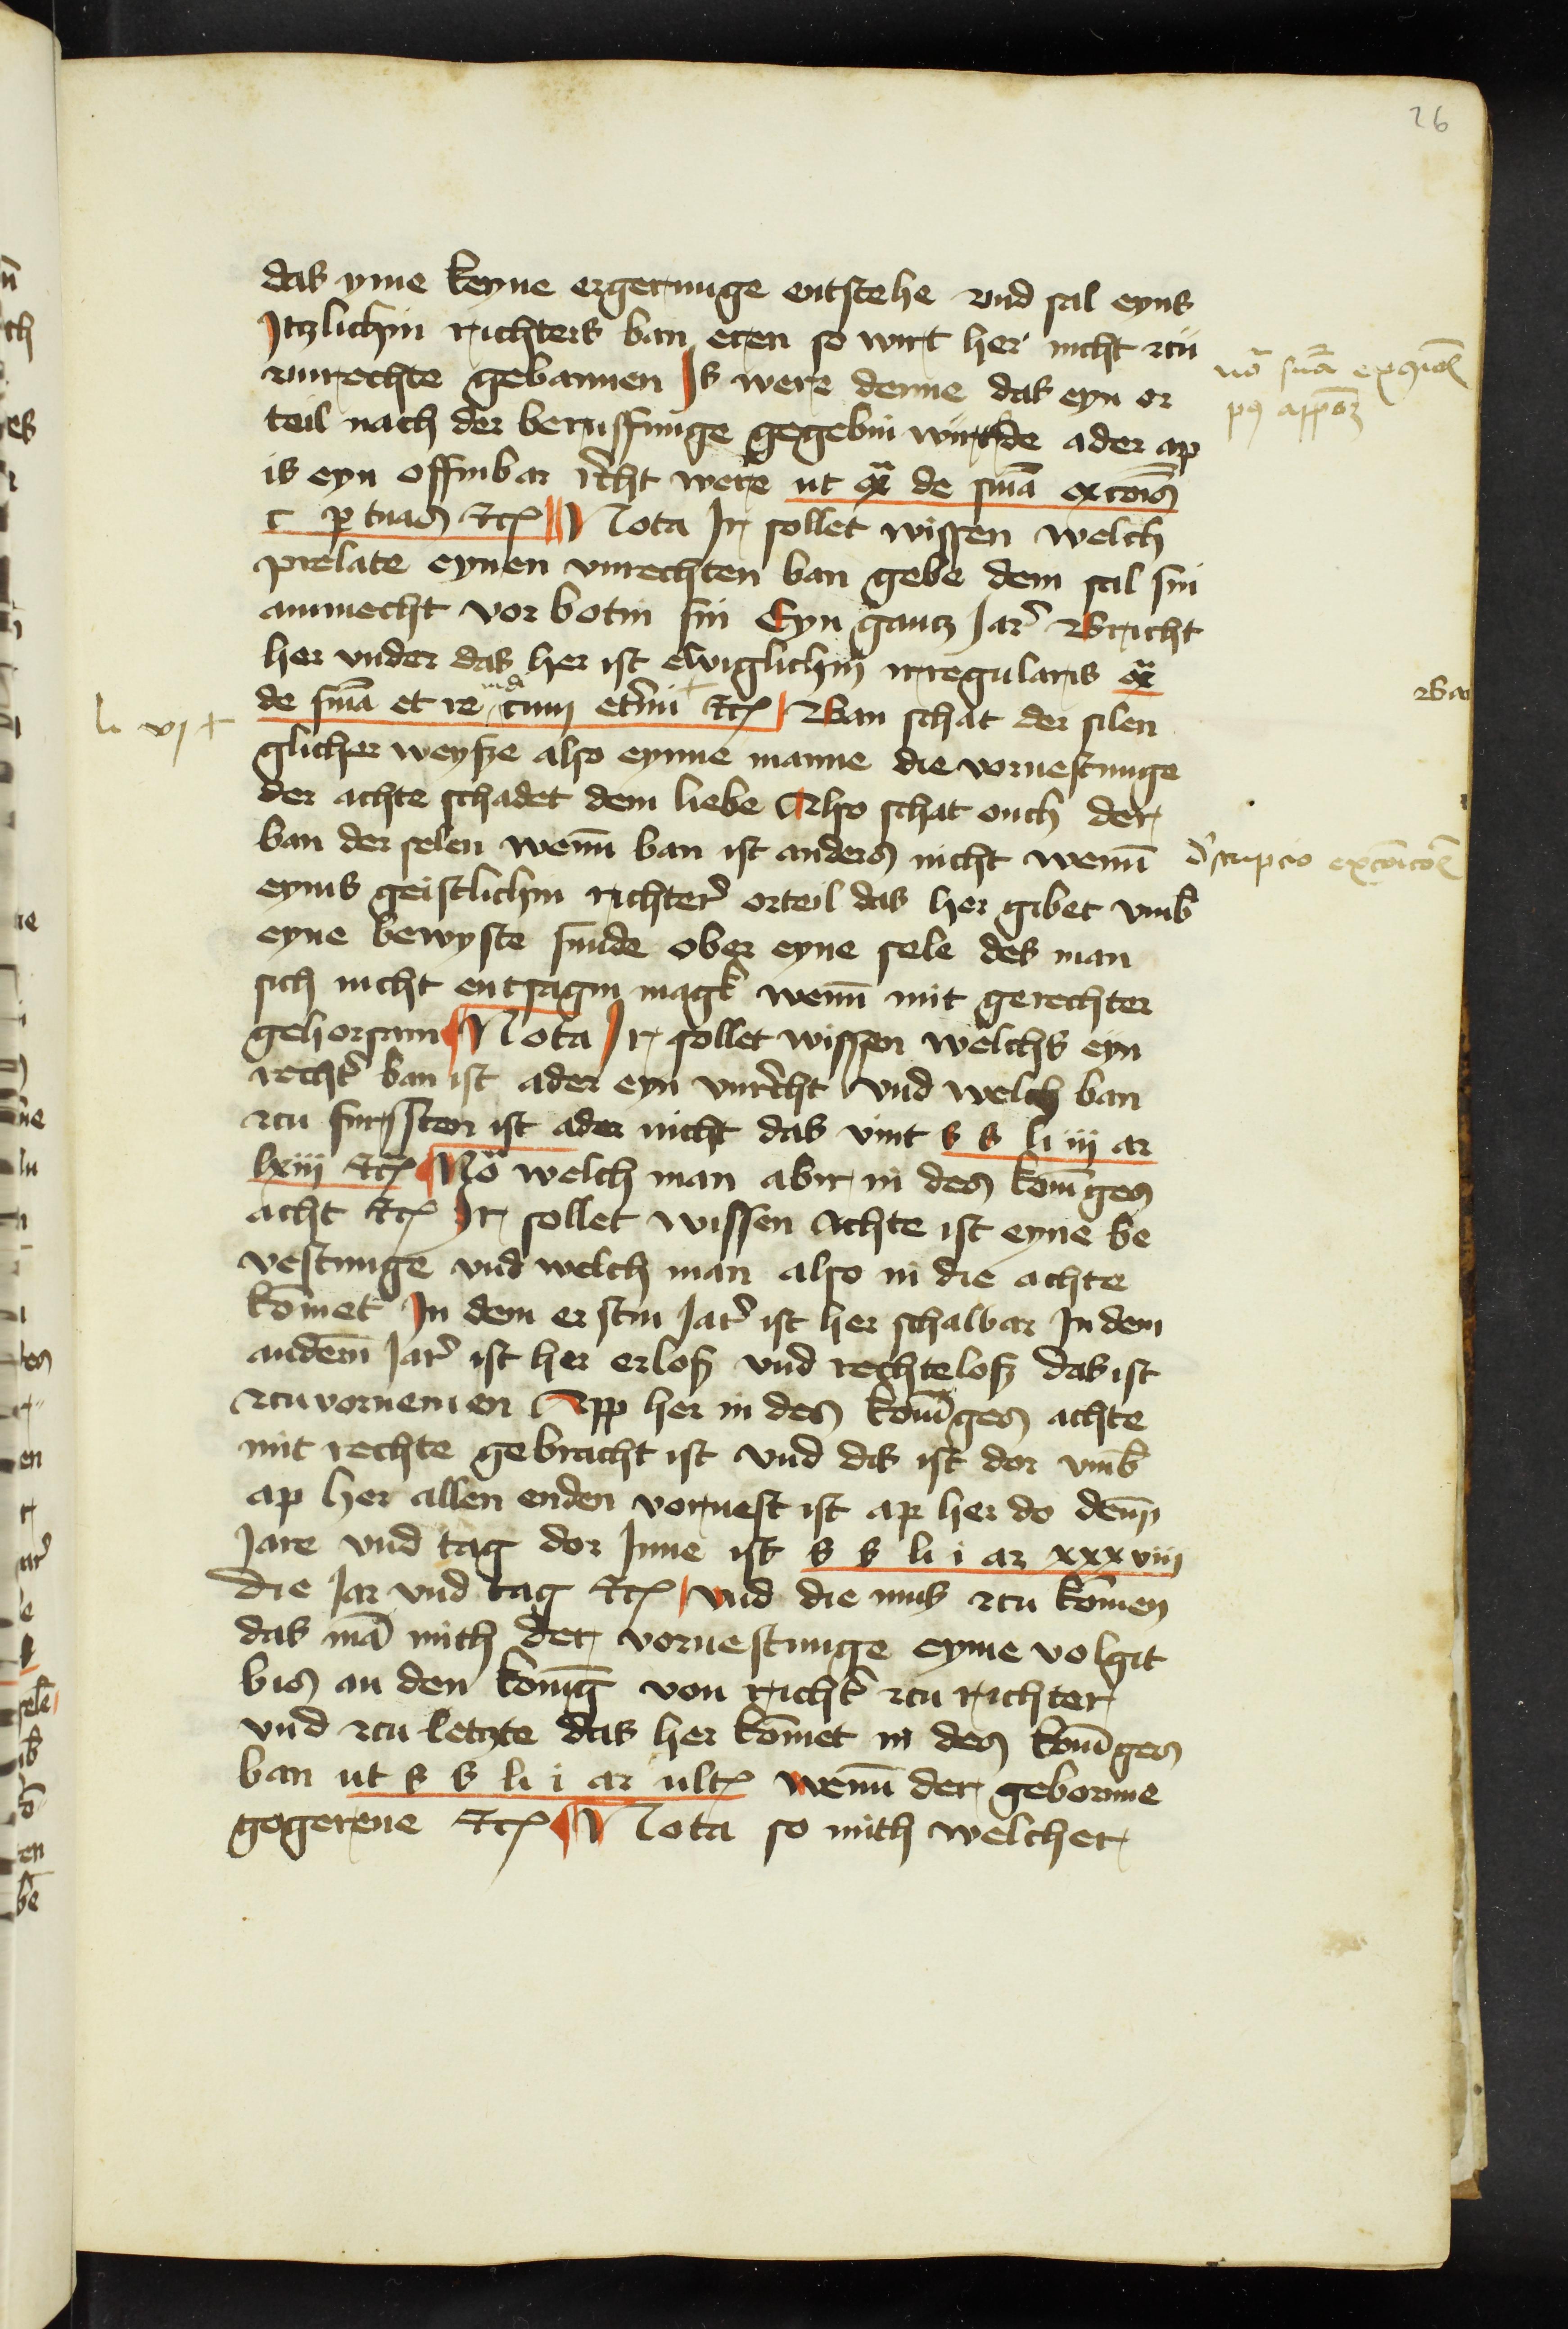 26
das yme keyne ergerunge entstehe vnd sal eyns
Itzlichin richters ban eren so wirt her nicht zcu
vnrechte gebannen Is were denne das eyn or
teil nach der beruffunge gegebin würde ader ap
is eyn offinbar r̄cht were ut ex̄ de sniā excōis
c p tuas etc̄ Nota Ir sollet wissen welch
prelate eynen vnrechten ban gebe dem sal sin
ammecht vor botin sin Eyn gantz Jar Bricht
her vnder das her ist ewiglichin irregularis ex̄
de sniā et re iudi cum et̄ni etc̄ Ban schat der silen
li vj +
glicher weysze also eynme manne die voruestunge
der achte schadet dem liebe Also schat ouch der
ban der selen wenn̄ ban ist anders nicht wenn̄
eyns geistlichin richters orteil das her gibet vmb
eyne bewyste sunde ober eyne sele des man
sich nicht entsagin magk wenn̄ mit gerechter
gehorsam Nota Ir sollet wissen welchs eyn
recht̄ ban ist ader eyn vnr̄cht vnd welch ban
zcu furchten ist ader nicht das vint s s li iii ar
lxiii etc̄ Nō welch man abir in des konīges
acht etc̄ Ir sollet wissen Achte ist eyne be
vestunge vnd welch man also in die achte
kōmet In dem erstin Jar ist her schalbar In dem
andēm Jar ist her erlosz vnd rechtelosz das ist
zcuvornemen App her in des konīges achte
mit rechte gebracht ist vnd dis ist dor vmb
ap her allen enden voruest ist ap her do dēn
Jare vnd tag dor Inne ist s s li i ar xxxviii
die Jar vnd tag etc̄ vnd die mus zcu kōmen
das mā mith der voruestunge eyme volgit
bis an den koniḡ von richt̄ zcu richter
vnd zcu letzte das her kōmet in des konīges
ban ut s s li i ar ult̄ wenn̄ der geborme
gogerene etc̄ Nota so mith welcher